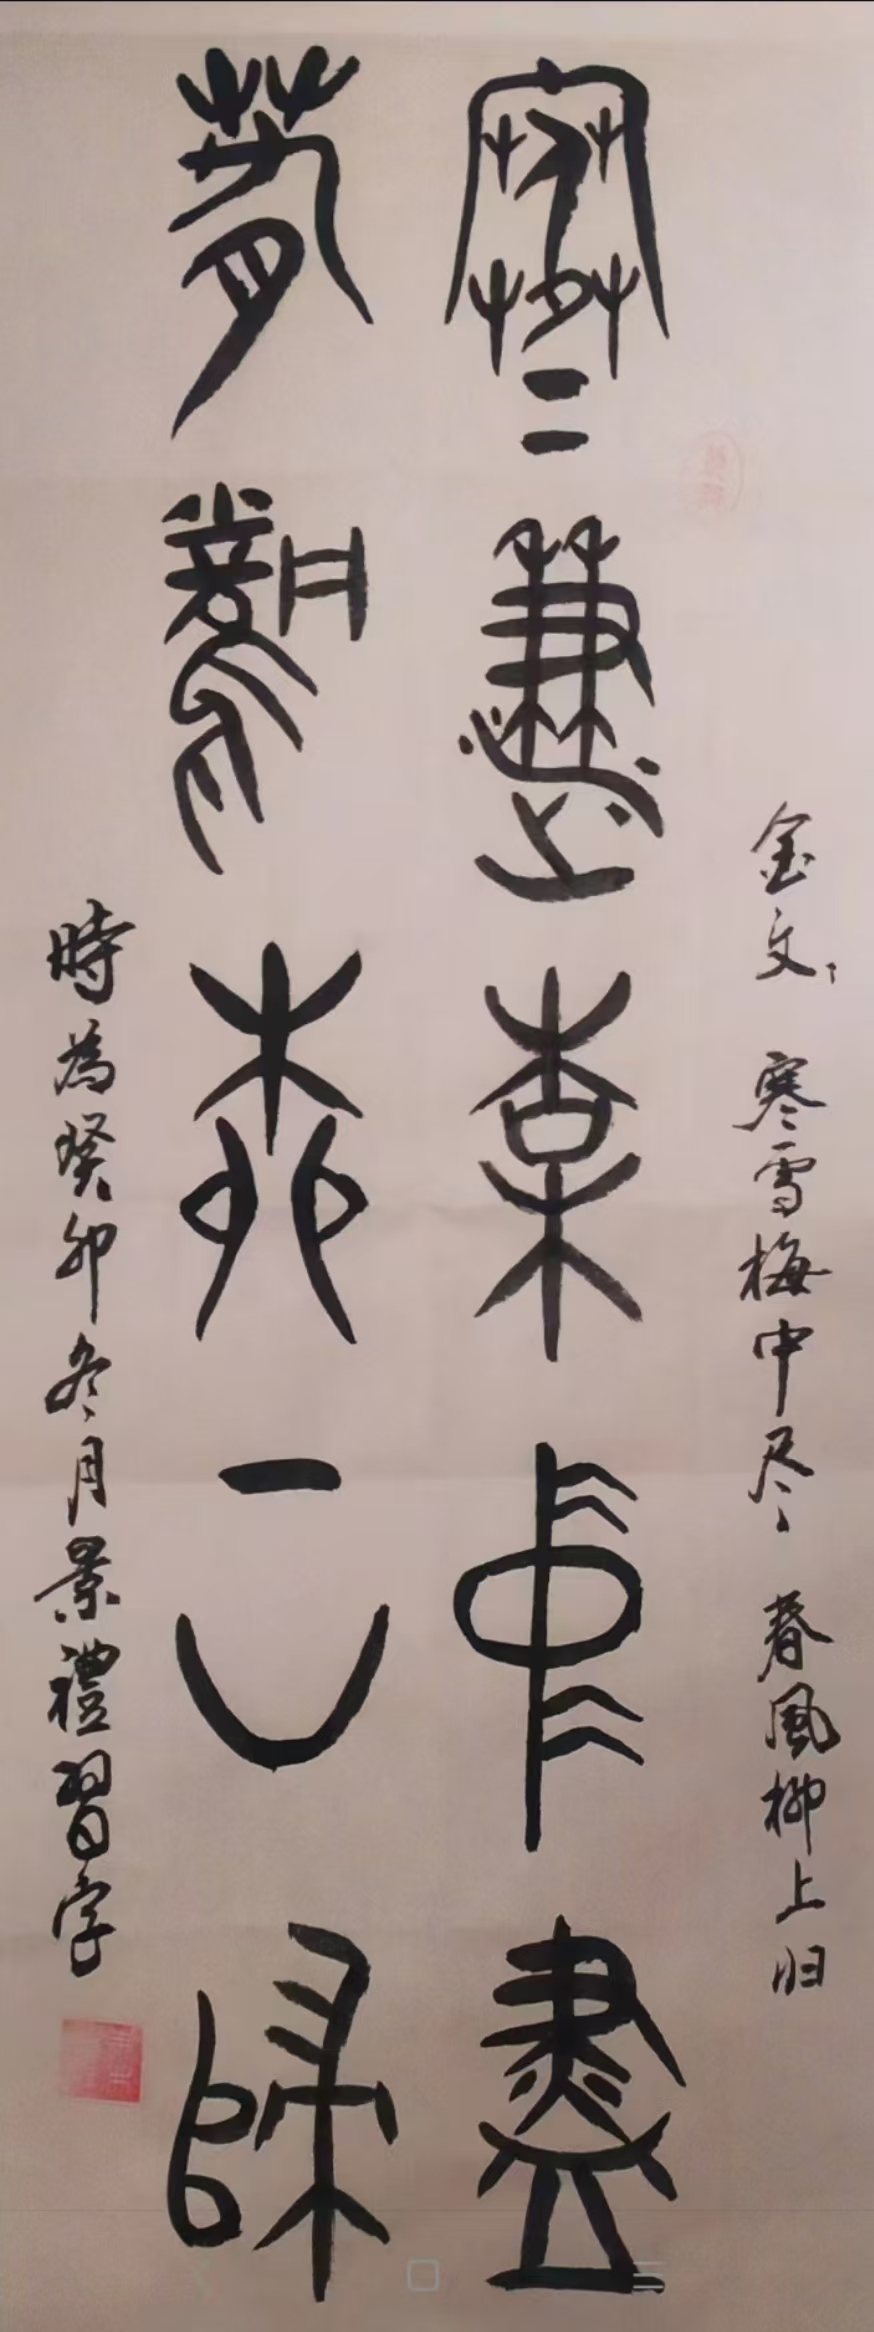 金文、寒雪梅中尽 春风柳上归
寒雪梅中盡
春風柳上歸
時為癸卯冬月景禮習字